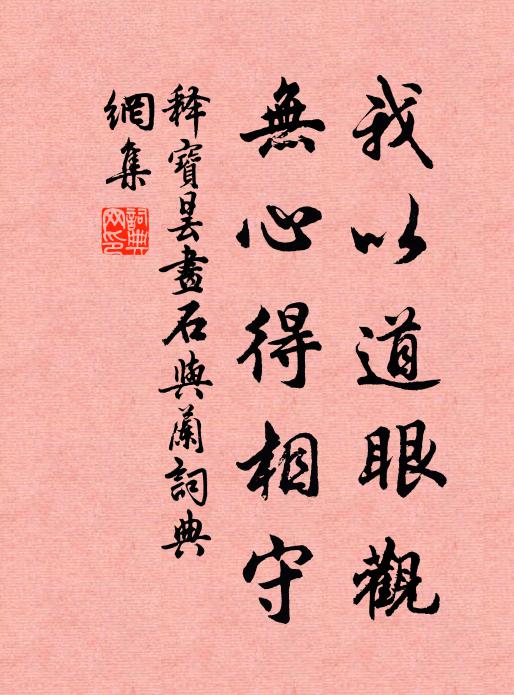 我以道眼觀
無心得相守
釋寶昙畫石與蘭詞典
網集
詞典
网印